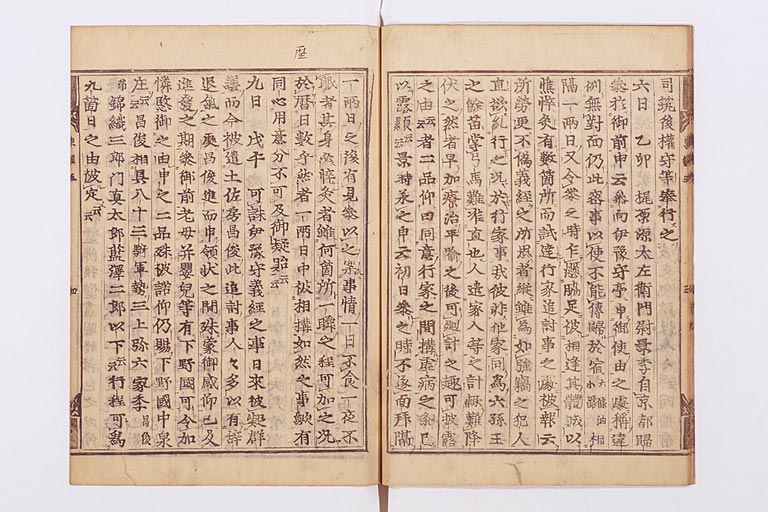 司統後權守等奉行之
六日 乙卯 梶原源太左衛門尉景季自京都歸
參於御前申云參向伊豫守亭申御使由之處稱違
例無對面仍此密事以使不能傳歸於旅宿六條油小路相
隔一兩日又令參之時乍懸脇足被相逢其體誠以
憔悴灸有數箇所而試達行家追討事之處被報云
所勞更不偽義經之所思者縱雖爲如強竊之犯人
直欲糺行之况於行家事哉彼非他家同爲六孫王
之餘苗掌弓馬難准直也人遣家人等之計輙難降
伏之然者早加療治平愈之後可廻計之趣可披露
之由云云者二品仰曰同意行家之間搆虚病之條已
以露顯云云景時承之申云初日參之時不遂面拜隔
一兩日之後有見參以之案事情一日不食一夜不
眠者其身必悴灸者雖何箇所一瞬之程可加之况
於曆日數乎然者一兩日中被相搆如然之事歟有
同心用意分不可及御疑貽云云
九日 戊午 可誅伊豫守義經之事日來被凝群
議而今被遣土佐房昌俊此追討事人々多以有辭
退氣之處昌俊進而申領状之間殊蒙御感仰已及
進發之期參御前老母并嬰兒等有下野國可令加
憐愍御之由申之二品殊被諾仰仍賜下野國中泉
庄云云昌俊相具八十三騎軍勢三上弥六家季昌俊
弟錦織三郎門真太郎藍澤二郎以下云云行程可爲
九箇日之由被定云云
歴